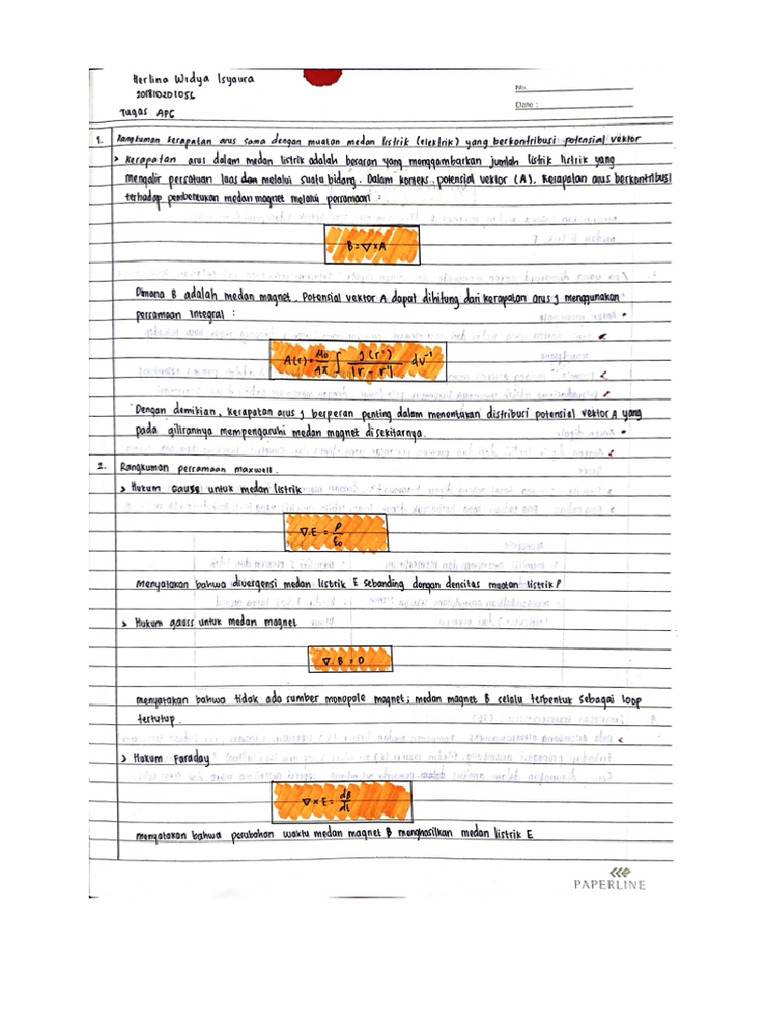 Herlina Widya Isyaura
Tugas APC
No.
Date :
1. Rangkuman kerapatan arus sama dengan muatan medan listrik (elektrik) yang berkontribusi potensial vektor
> Kerapatan arus dalam medan listrik adalah besaran yang menggambarkan jumlah listik listrik yang
mengalir persatuan luas dan melalui suatu bidang. Dalam konteks potensial vektor (A), kerapatan arus berkontribusi
terhadap pembentukan medan magnet melalui persamaan :
B = ∇ × A
Dimana B adalah medan magnet. Potensial vektor A dapat dihitung dari kerapatan arus J menggunakan
persamaan integral :
A(r) = μ0/4π ∫ J(r')/|r - r'| dv⁻¹
Dengan demikian, kerapatan arus J berperan penting dalam menentukan distribusi potensial vektor A yang
pada gilirannya mempengaruhi medan magnet disekitarnya.
2. Rangkuman persamaan maxwell.
> Hukum Gauss untuk medan listrik
∇.E = ρ/ε0
Menyatakan bahwa divergensi medan listrik E sebanding dengan densitas muatan listrik ρ
> Hukum gauss untuk medan magnet
∇.B = 0
menyatakan bahwa tidak ada sumber monopole magnet; medan magnet B selalu terbentuk sebagai loop
tertutup.
> Hukum Faraday
∇×E = dB/dt
menyatakan bahwa perubahan waktu medan magnet B menghasilkan medan listrik E
PAPERLINE